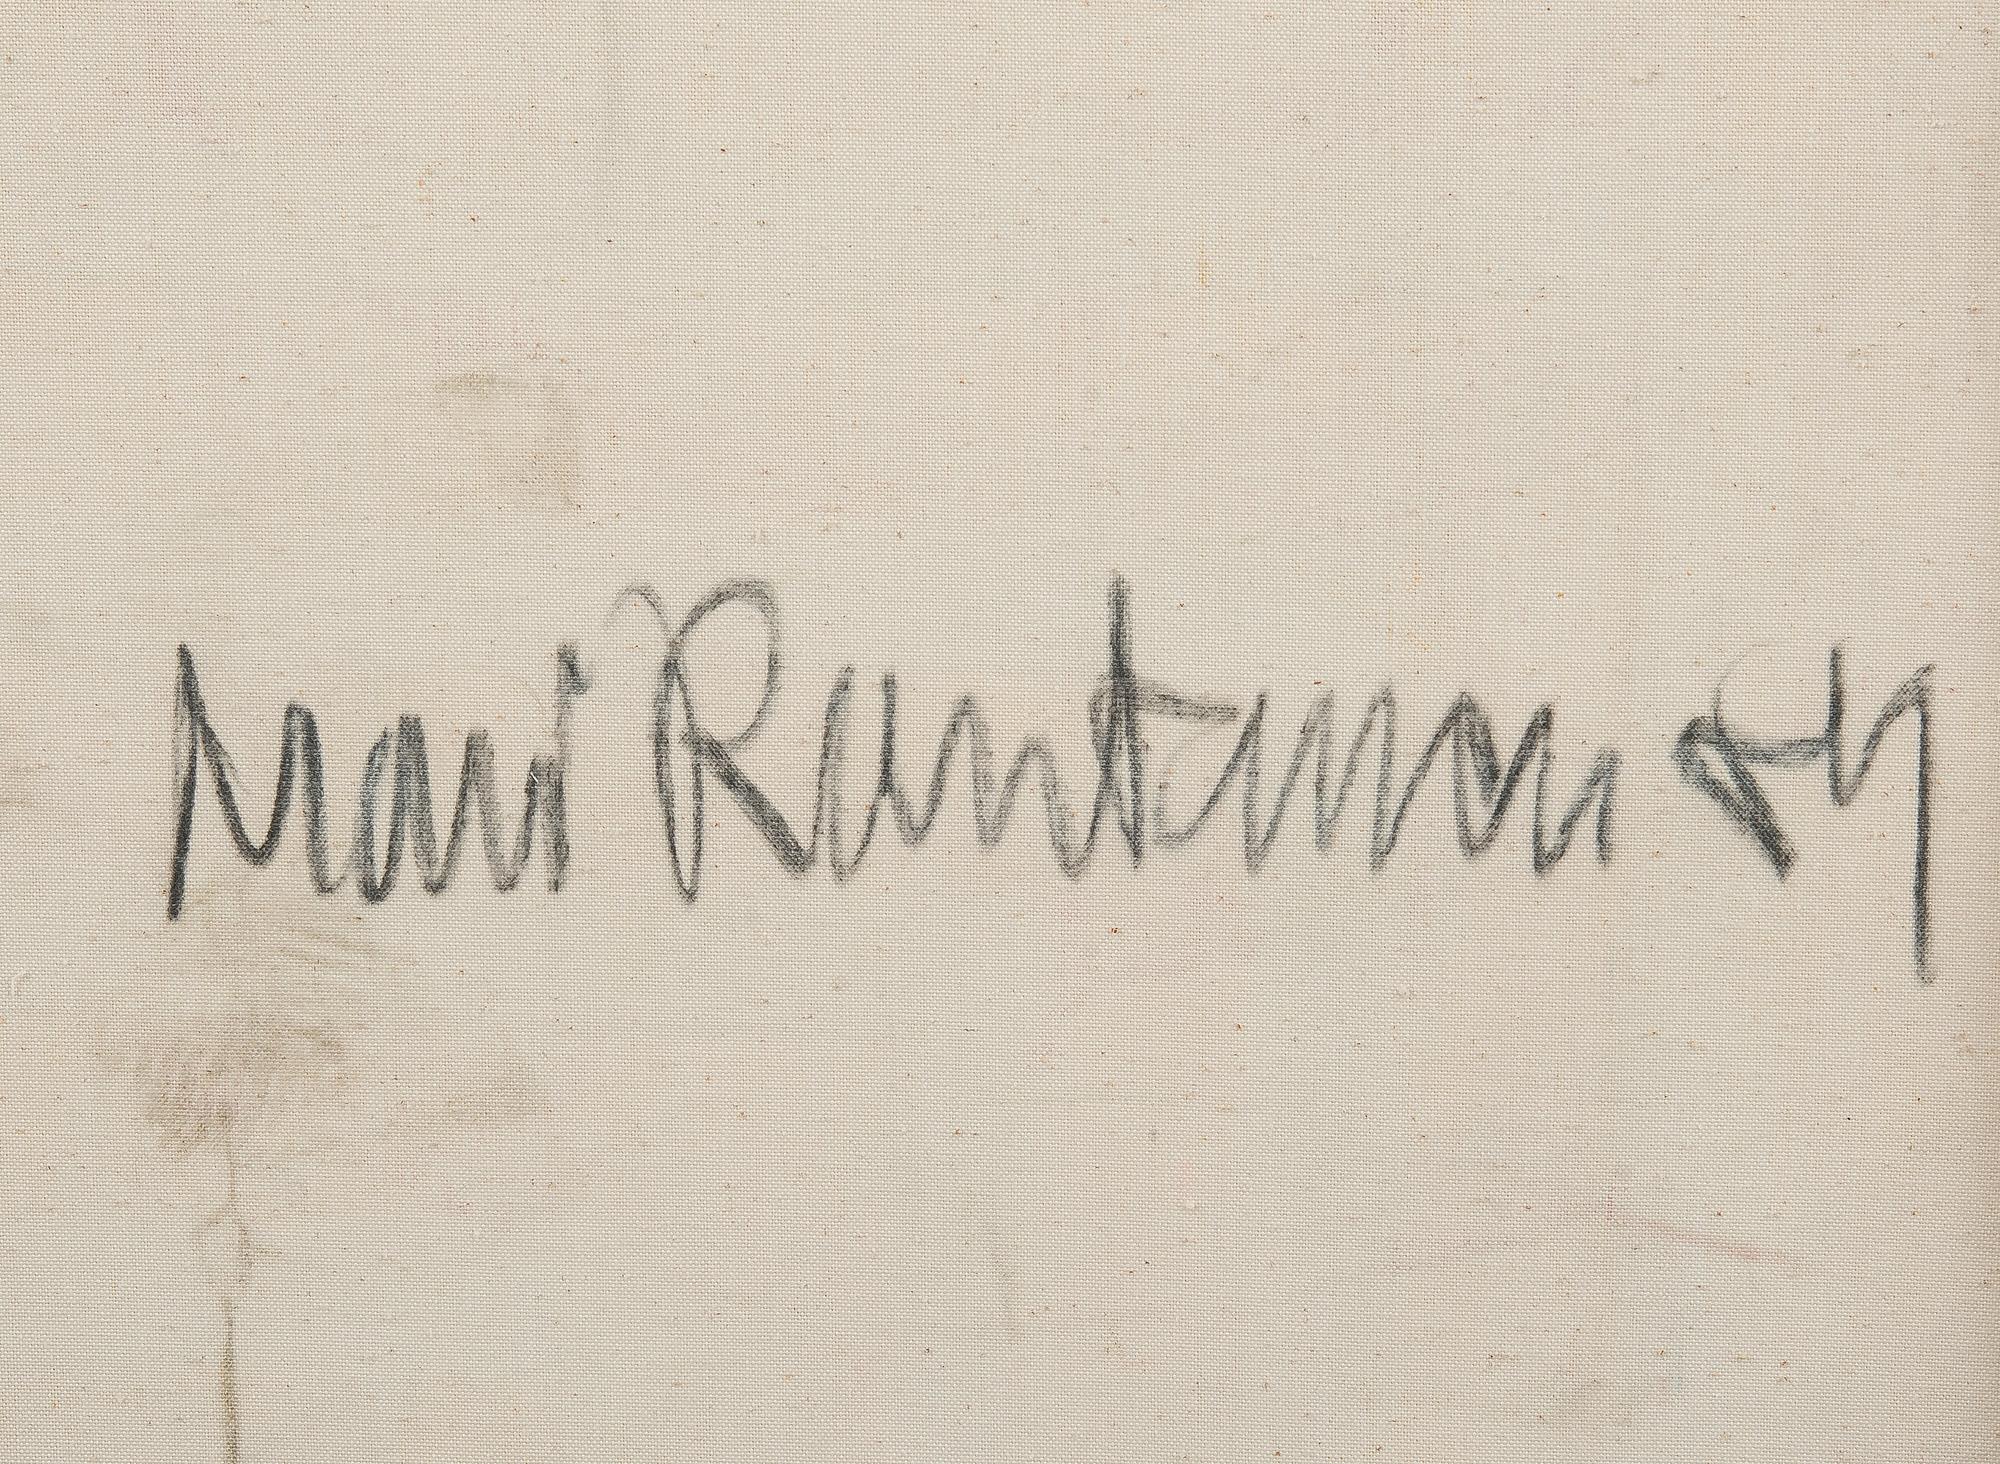 Mari Rantanen